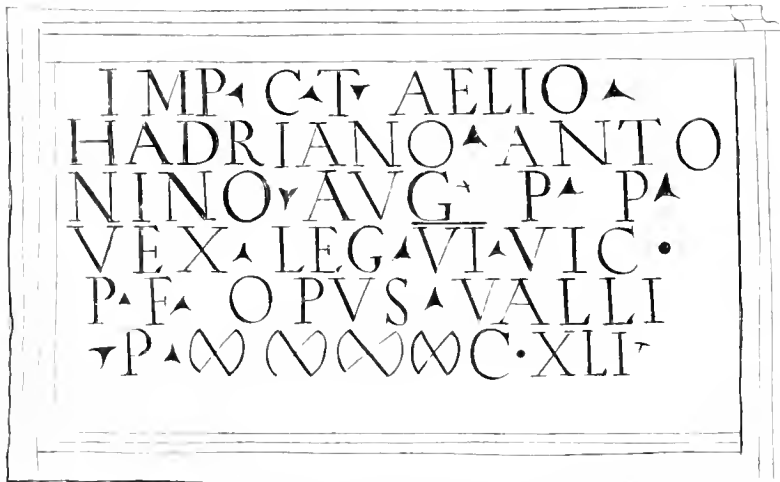 IMP C T AELIO
HADRIANO ANTO
NINO AVG P P
VEX LEG VI VIC
P F OPVS VALLI
P ∞ ∞ ∞ ∞ C XLI